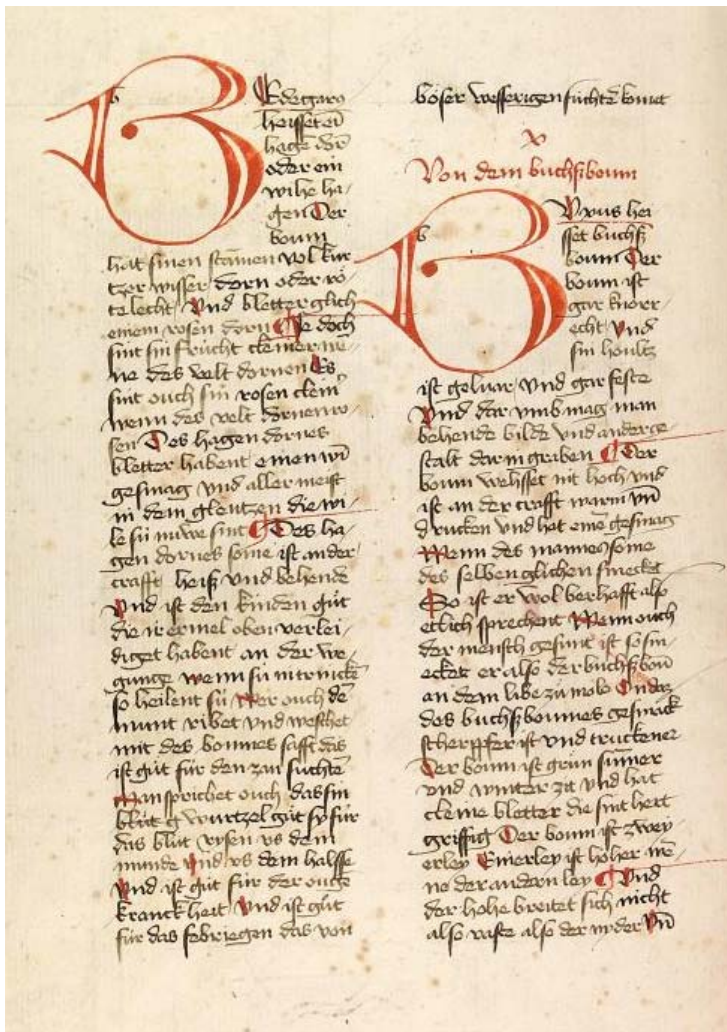 BEdegaro
heisset ein
hagen dorn
oder ein
wilhe ha-
gen Der
boum
hat sinen stamen vol kur
tzer wisser dorn oder rö-
telecht Vnd bletter glich
einem rosen dorn Ye doch
sint sin frücht cleiner we-
ne des velt dornen Es
sint ouch sin rosen clein
wenn des velt dornen ro-
sen Des hagen dornes
bletter habent einen wi
gesmag vnd aller meist
in dem glentzen die wi-
le sü nuwe sint Des ha-
gen dornes some ist ander
crafft heiß vnd behende
Vnd ist den kinden güt
die ir ermel oben verlei-
diget habent an der we-
gunge wenn sü in trincke
so heilent sü Wer ouch de
munt ribet vnd weschet
mit des boumes safft das
ist güt für den zan suchte
Man sprichet ouch das sin
blüt wurtzel güt sy für
das blüt rysen vs dem
munde Vnd vs dem halsse
Vnd ist güt für der ouge
kranckheit Vnd ist güt
für das febriegen das von
böser wesserigen füchte komet
x
Von dem buchßboum
BVxus hei
sset buchß
boum Der
boum ist
gar knorr-
echt Vnd
sin houltz
ist geluar Vnd gar feste
Vnd dar vmb mag man
behende bilde vnd ander ge-
stalt dar in graben Der
boum wehsset nit hoch vnd
ist an der crafft warm vn
drucken vnd hat eine gesmag
Wenn des mannes some
des selben glichen smecket
So ist er wol verhafft also
ettlich sprechent Wenn ouch
der mensch gesunt ist so sm-
ecket er also der buchßbou
an dem libe zu mole
des buchßboumes gesmack
scherpffer ist vnd truckener
Der boum ist grün summer
vnd winter zit Vnd hat
cleine bletter die sint hert
griffig Der boum ist zwey
erley Einerley ist hoher we-
ne der andern ley Vnd
der hohe breitet sich nicht
also vaste also der nyder Vn